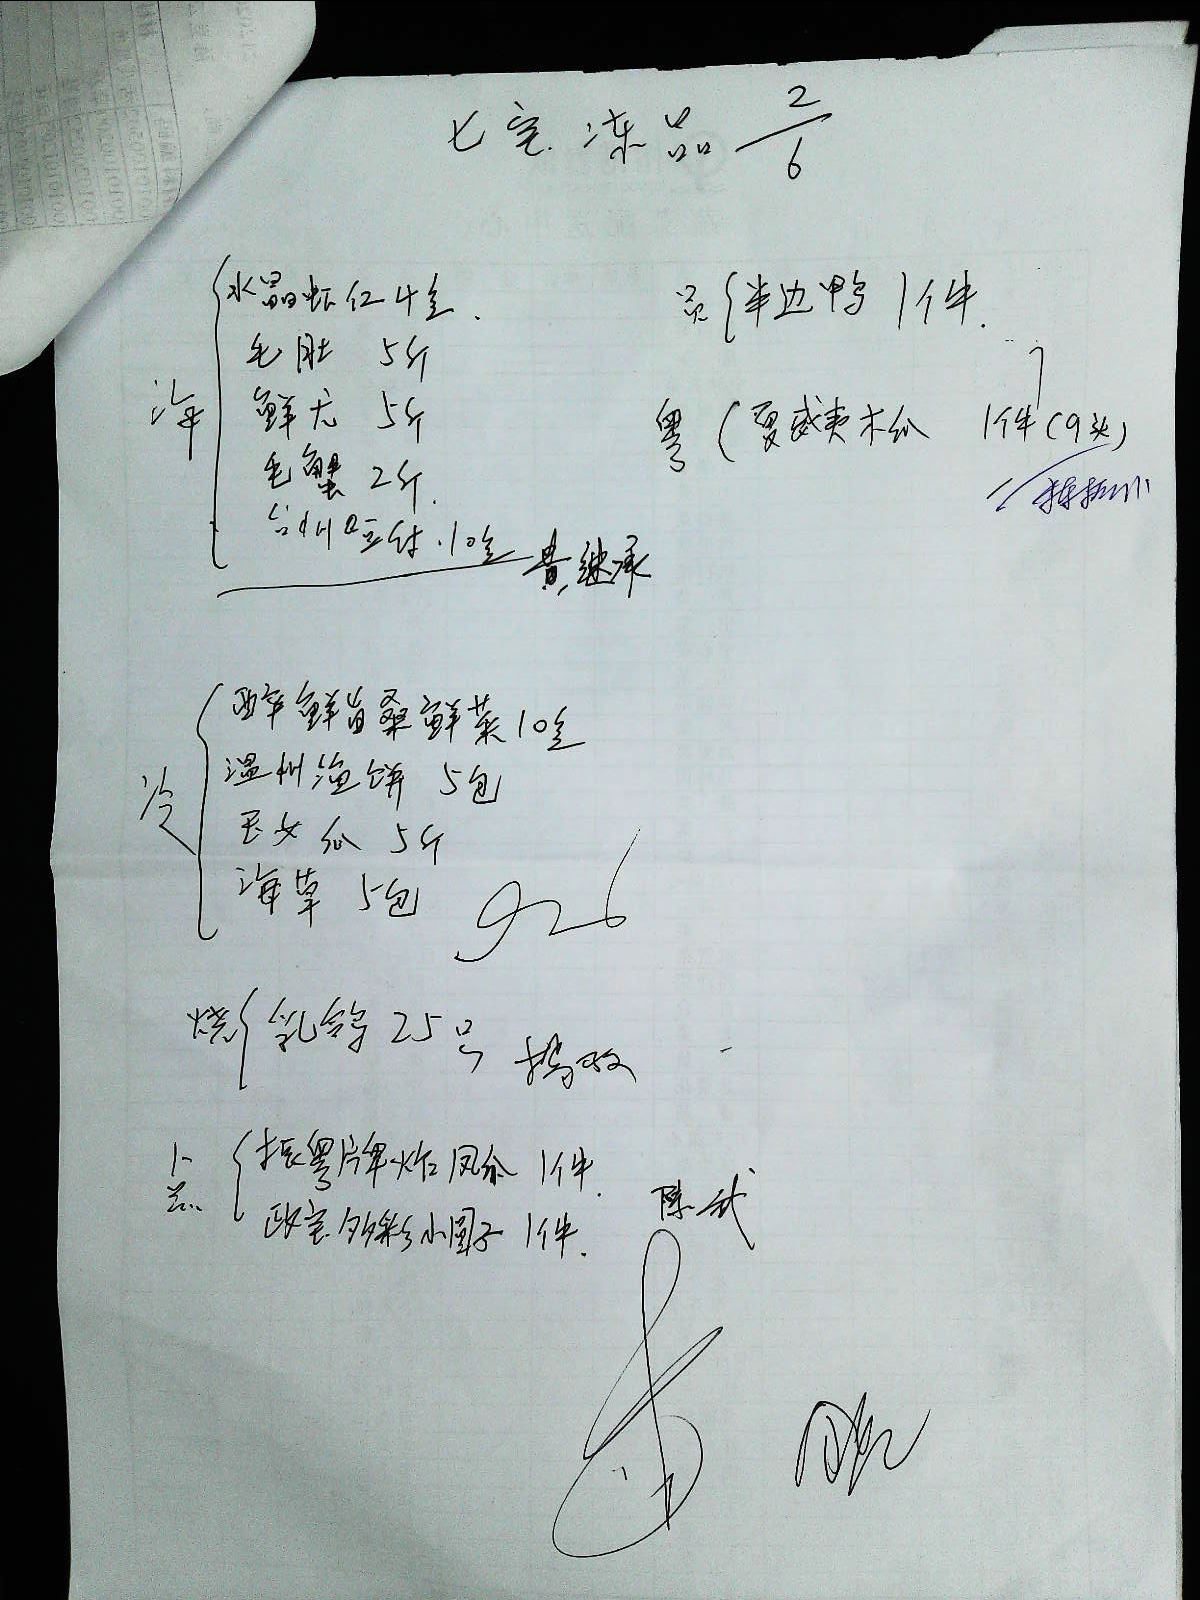 七宝冻品 2/6
海
水晶虾仁 4盒
毛肚 5斤
鲜尤 5斤
毛蟹 2斤
台州 10盒
黄继承
员 半边鸭 1件
粤 夏威夷木瓜 1件(9头)
冷
醉鲜 鲜菜 10盒
温州渔饼 5包
玉女瓜 5斤
海草 5包
926
烧 乳鸽 25号
点
振粤牌炸凤 1件
政宝多彩小圆子 1件
陈武